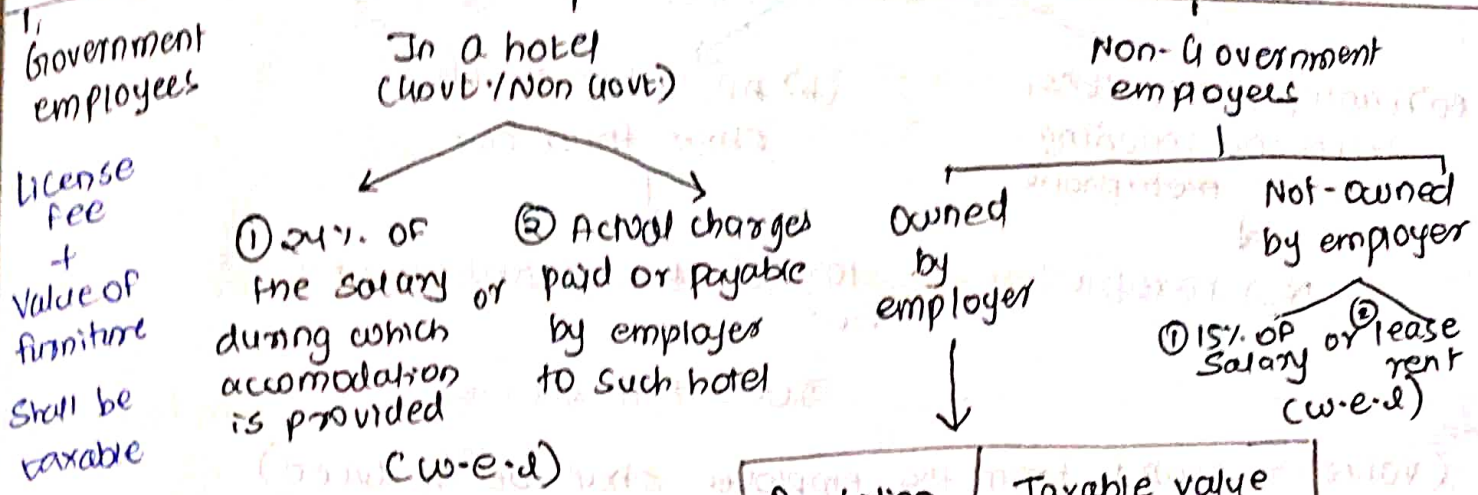 1,
Government
employees
License
fee
+
Value of
furniture
Shall be
taxable
In a hotel
(Govt./Non Govt.)
① 24%. of
the salary or
during which
accomodation
is provided
② Actual charges
paid or payable
by employer
to such hotel
(w-e-l)
Non-Government
employees
owned
by
employer
Not-owned
by employer
① 15%. of
Salary
or
② lease
rent
(w-e-l)
Taxable value